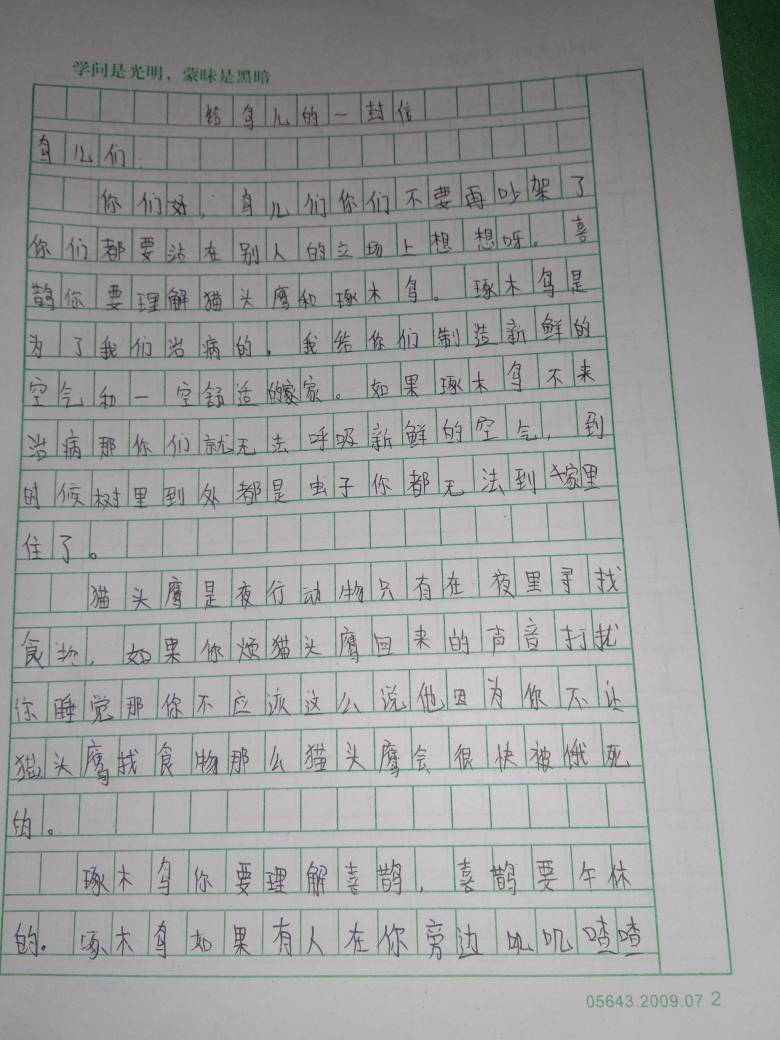 学问是光明，蒙昧是黑暗
给鸟儿的一封信
鸟儿们：
你们好，鸟儿们你们不要再吵架了
你们都要沾在别人的立场上想想呀。喜
鹊你要理解猫头鹰和琢木鸟。琢木鸟是
为了我们治病的，我给你们制造新鲜的
空气和一空舒适的家。如果琢木鸟不来
治病那你们就无法呼吸新鲜的空气，到
时候树里到处都是虫子你都无法到家里
住了。
猫头鹰是夜行动物只有在夜里寻找
食物，如果你烦猫头鹰回来的声音打扰
你睡觉那你不应该这么说他因为你不让
猫头鹰找食物那么猫头鹰会很快被饿死
的。
琢木鸟你要理解喜鹊，喜鹊要午休
的。琢木鸟如果有人在你旁边叽叽喳喳
05643.2009.07 2